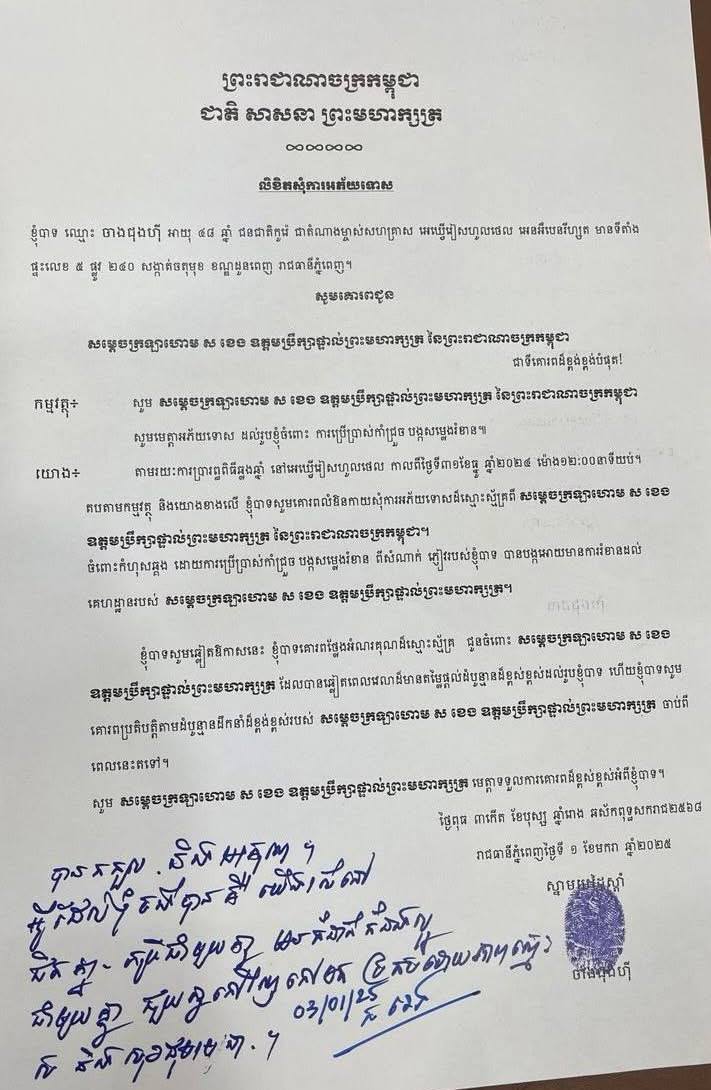 ព្រះរាជាណាចក្រកម្ពុជា
ជាតិ សាសនា ព្រះមហាក្សត្រ
លិខិតសុំការអភ័យទោស
ខ្ញុំបាទ ឈ្មោះ ចាងជុងហ៊ី អាយុ ៤៨ ឆ្នាំ ជនជាតិកូរ៉េ ជាតំណាងម្ចាស់សហគ្រាស អេឃ្វើរៀសហូលថេល អេនអឺបេនរីហ្សត មានទីតាំង
ផ្ទះលេខ ៥ ផ្លូវ ២៤០ សង្កាត់ចតុមុខ ខណ្ឌដូនពេញ រាជធានីភ្នំពេញ។
សូមគោរពជូន
សម្តេចក្រឡាហោម ស ខេង ឧត្តមប្រឹក្សាផ្ទាល់ព្រះមហាក្សត្រ នៃព្រះរាជាណាចក្រកម្ពុជា
ជាទីគោរពដ៏ខ្ពង់ខ្ពង់បំផុត!
កម្មវត្ថុ÷ សូម សម្តេចក្រឡាហោម ស ខេង ឧត្តមប្រឹក្សាផ្ទាល់ព្រះមហាក្សត្រ នៃព្រះរាជាណាចក្រកម្ពុជា
សូមមេត្តាអភ័យទោស ដល់រូបខ្ញុំចំពោះ ការប្រើប្រាស់កាំជ្រួច បង្កសម្លេងរំខាន៕
យោង÷ តាមរយៈការប្រារព្ធពិធីឆ្លងឆ្នាំ នៅអេឃ្វើរៀសហូលថេល កាលពីថ្ងៃទី៣១ខែធ្នូ ឆ្នាំ២០២៤ ម៉ោង១២:០០នាទីយប់។
តបតាមកម្មវត្ថុ និងយោងខាងលើ ខ្ញុំបាទសូមគោរពលំឱនកាយសុំការអភ័យទោសដ៏ស្មោះស្ម័គ្រពី សម្តេចក្រឡាហោម ស ខេង
ឧត្តមប្រឹក្សាផ្ទាល់ព្រះមហាក្សត្រ នៃព្រះរាជាណាចក្រកម្ពុជា។
ចំពោះកំហុសឆ្គង ដោយការប្រើប្រាស់កាំជ្រួច បង្កសម្លេងរំខាន ពីសំណាក់ ភ្ញៀវរបស់ខ្ញុំបាទ បានបង្កអោយមានការរំខានដល់
គេហដ្ឋានរបស់ សម្តេចក្រឡាហោម ស ខេង ឧត្តមប្រឹក្សាផ្ទាល់ព្រះមហាក្សត្រ។
ខ្ញុំបាទសូមឆ្លៀតឱកាសនេះ ខ្ញុំបាទគោរពថ្លែងអំណរគុណដ៏ស្មោះស្ម័គ្រ ជូនចំពោះ សម្តេចក្រឡាហោម ស ខេង
ឧត្តមប្រឹក្សាផ្ទាល់ព្រះមហាក្សត្រ ដែលបានឆ្លៀតពេលវេលាដ៏មានតម្លៃផ្តល់ដំបូន្មានដ៏ខ្ពស់ខ្ពស់ដល់រូបខ្ញុំបាទ ហើយខ្ញុំបាទសូម
គោរពប្រតិបត្តិតាមដំបូន្មានដឹកនាំដ៏ខ្ពង់ខ្ពស់របស់ សម្តេចក្រឡាហោម ស ខេង ឧត្តមប្រឹក្សាផ្ទាល់ព្រះមហាក្សត្រ ចាប់ពី
ពេលនេះតទៅ។
សូម សម្តេចក្រឡាហោម ស ខេង ឧត្តមប្រឹក្សាផ្ទាល់ព្រះមហាក្សត្រ មេត្តាទទួលការគោរពដ៏ខ្ពស់ខ្ពស់អំពីខ្ញុំបាទ។
ថ្ងៃពុធ ៣កើត ខែបុស្ស ឆ្នាំរោង ឆស័កពុទ្ធសករាជ២៥៦៨
រាជធានីភ្នំពេញថ្ងៃទី ១ ខែមករា ឆ្នាំ២០២៥
ស្នាមមេដៃស្តាំ
ចាងជុងហ៊ី
បានទទួល
ជាមួយគ្នា
03/01/25
ស ខេង